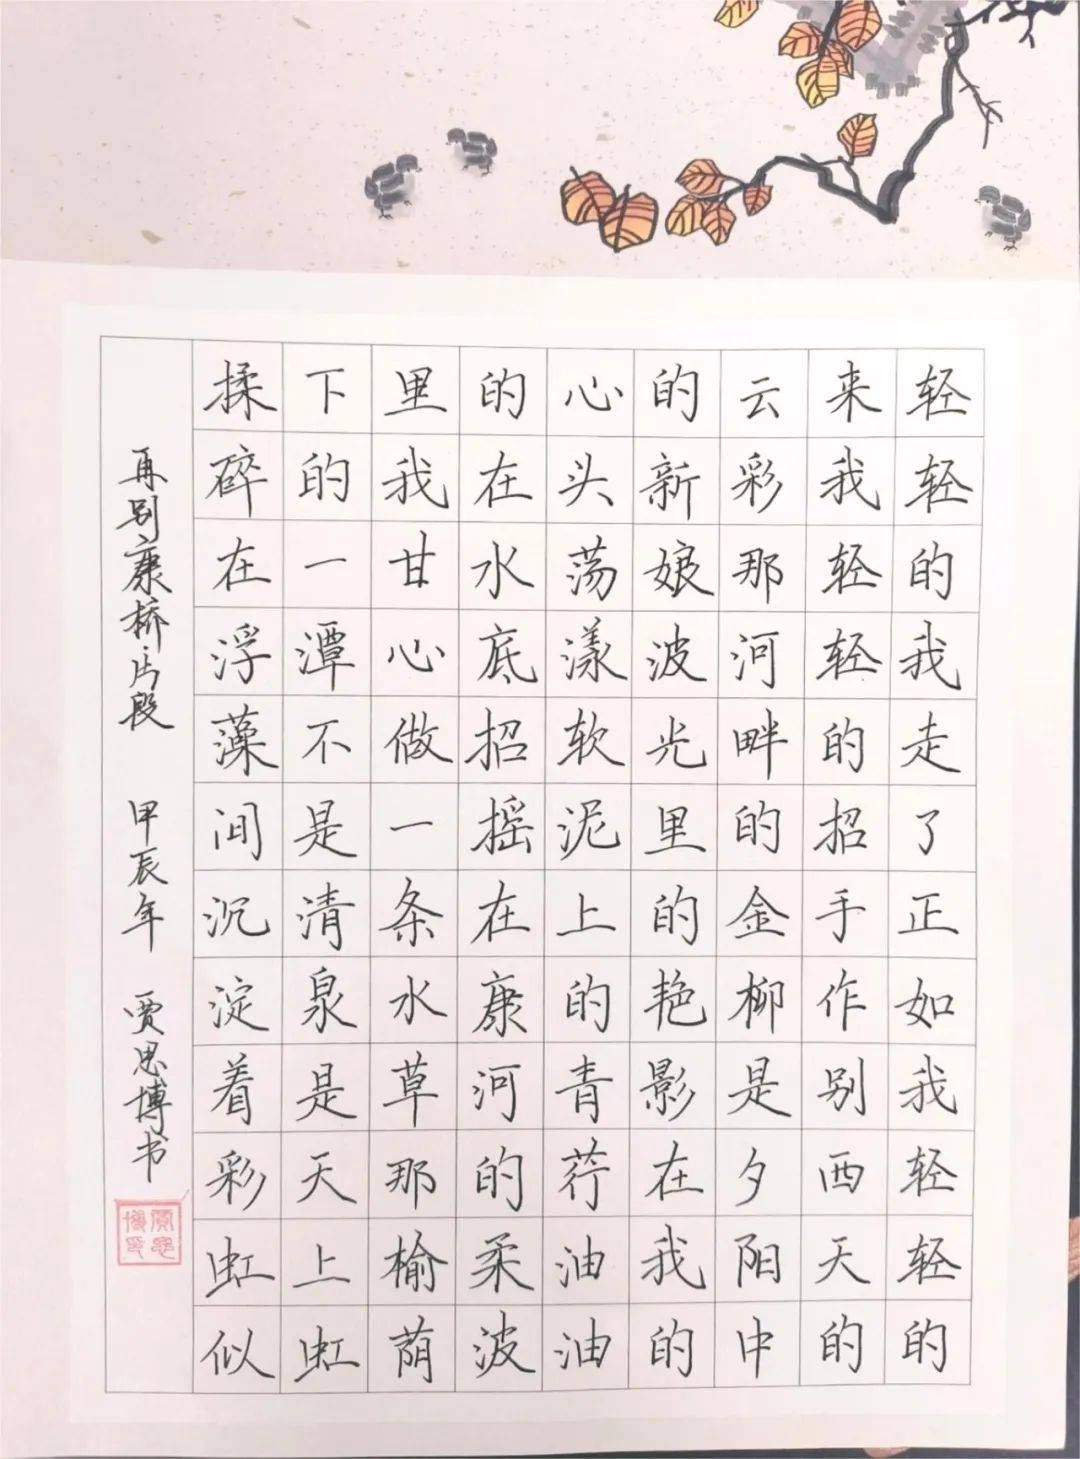 轻轻的我走了正如我轻轻的
来我轻轻的招手作别西天的
云彩那河畔的金柳是夕阳中
的新娘波光里的艳影在我的
心头荡漾软泥上的青荇油油
的在水底招摇在康河的柔波
里我甘心做一条水草那榆荫
下的一潭不是清泉是天上虹
揉碎在浮藻间沉淀着彩虹似
再别康桥片段 甲辰年 贾思博书